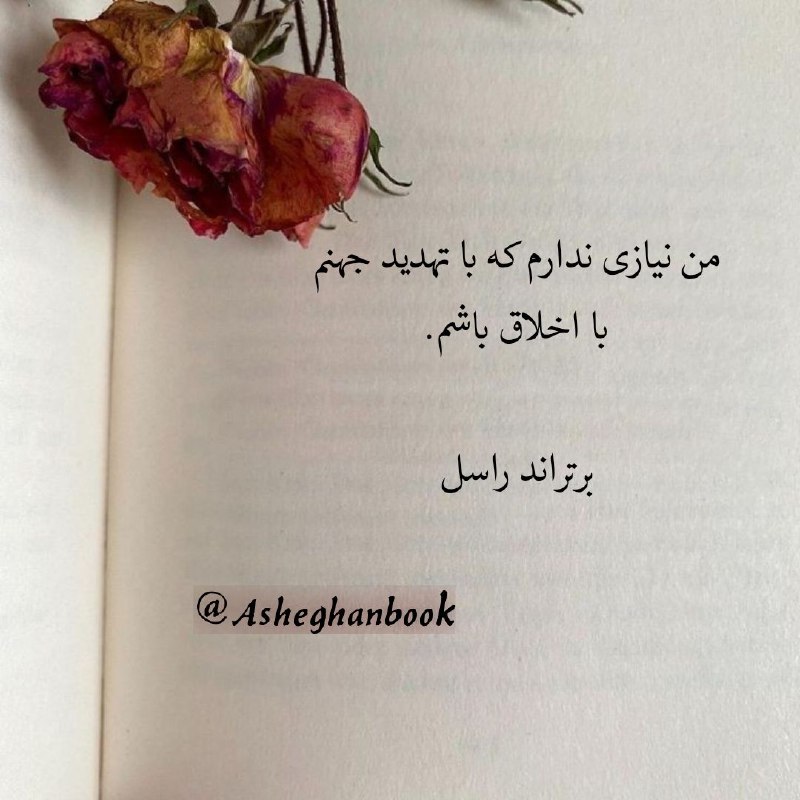 من نیازی ندارم که با تهدید جهنم
با اخلاق باشم.
برتراند راسل
@Asheghanbook